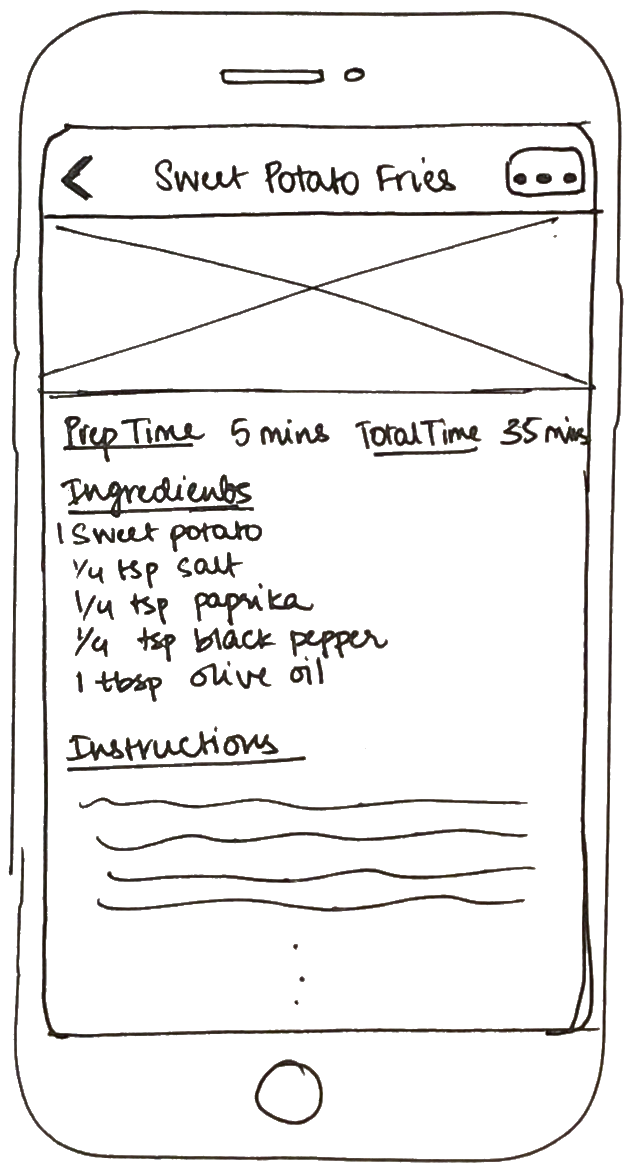 Sweet Potato Fries
Prep Time 5 mins Total Time 35 mins
Ingredients
1 Sweet potato
1/4 tsp salt
1/4 tsp paprika
1/4 tsp black pepper
1 tbsp olive oil
Instructions